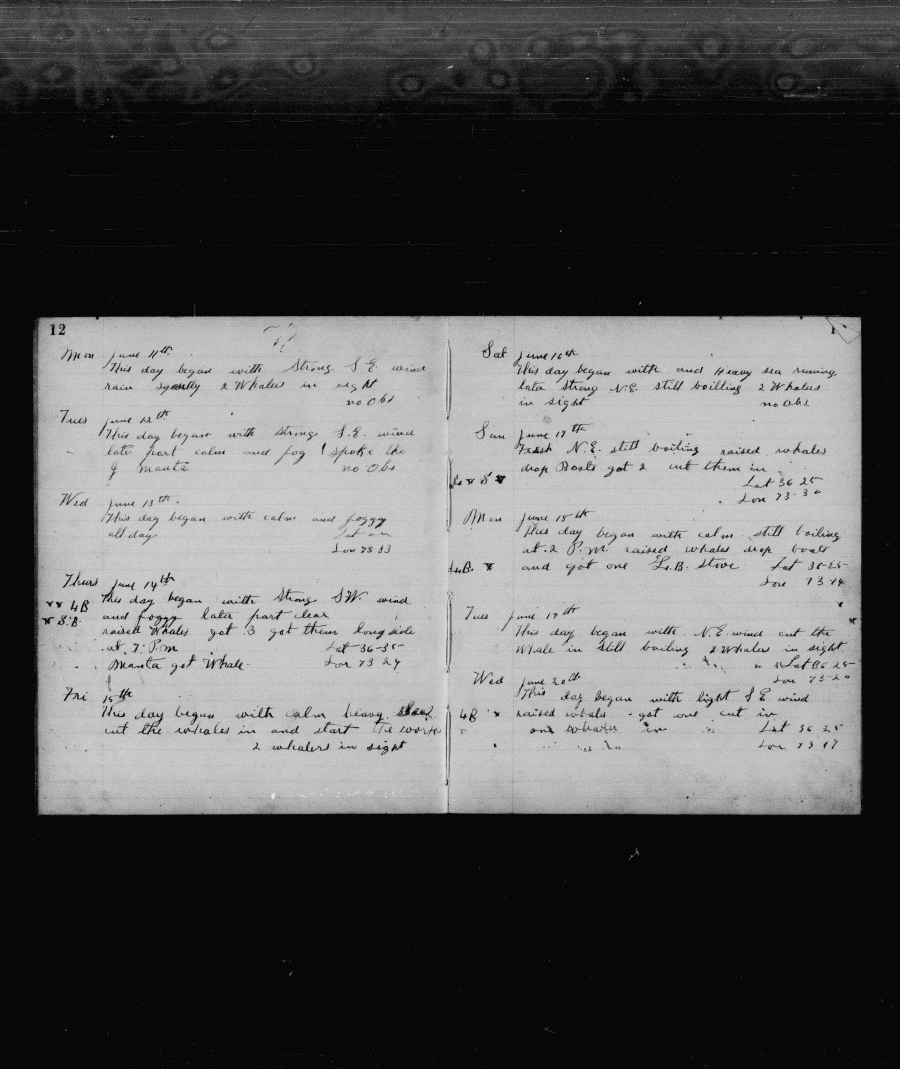 12
Mon June 11th
This day began with Strong S.E. wind
rain squally 2 Whalers in sight
no Obs
Tues June 12th
This day began with strong S.E. wind
later part calm and fog spoke the
J Manta
no Obs
Wed June 13th
This day began with calm and foggy
all day
Lon 73 33
Thurs June 14th
This day began with Strong S.W. wind
4B
and foggy later part clear
S.B.
raised Whales got 3 got them longside
at 7. P.m
Lat 36-35
Manta got Whale
Lon 73 24
Fri 15th
This day began with calm heavy
cut the whales in and start the works
2 whalers in sight
Sat June 16th
This day began with and Heavy sea running
later strong N.E. still boilling 2 Whalers
in sight
no Obs
Sun June 17th
Fresh N.E. still boiling raised whales
drop Boats got 2 cut them in
Lat 36 25
Lon 73-30
Mon June 18th
This day began with calm still boiling
at 2 P.m. raised whales drop boats
and got one L.B. stove
Lat 36-25
L.B.
Lon 73 14
Tues June 19th
This day began with N.E. wind cut the
Whale in still boiling 2 Whaler in sight
Lat 36 25
Lon 73-20
Wed June 20th
This day began with light S E wind
4B
raised whals got one cut in
one whales in
Lat 36 25
Lon 73 17